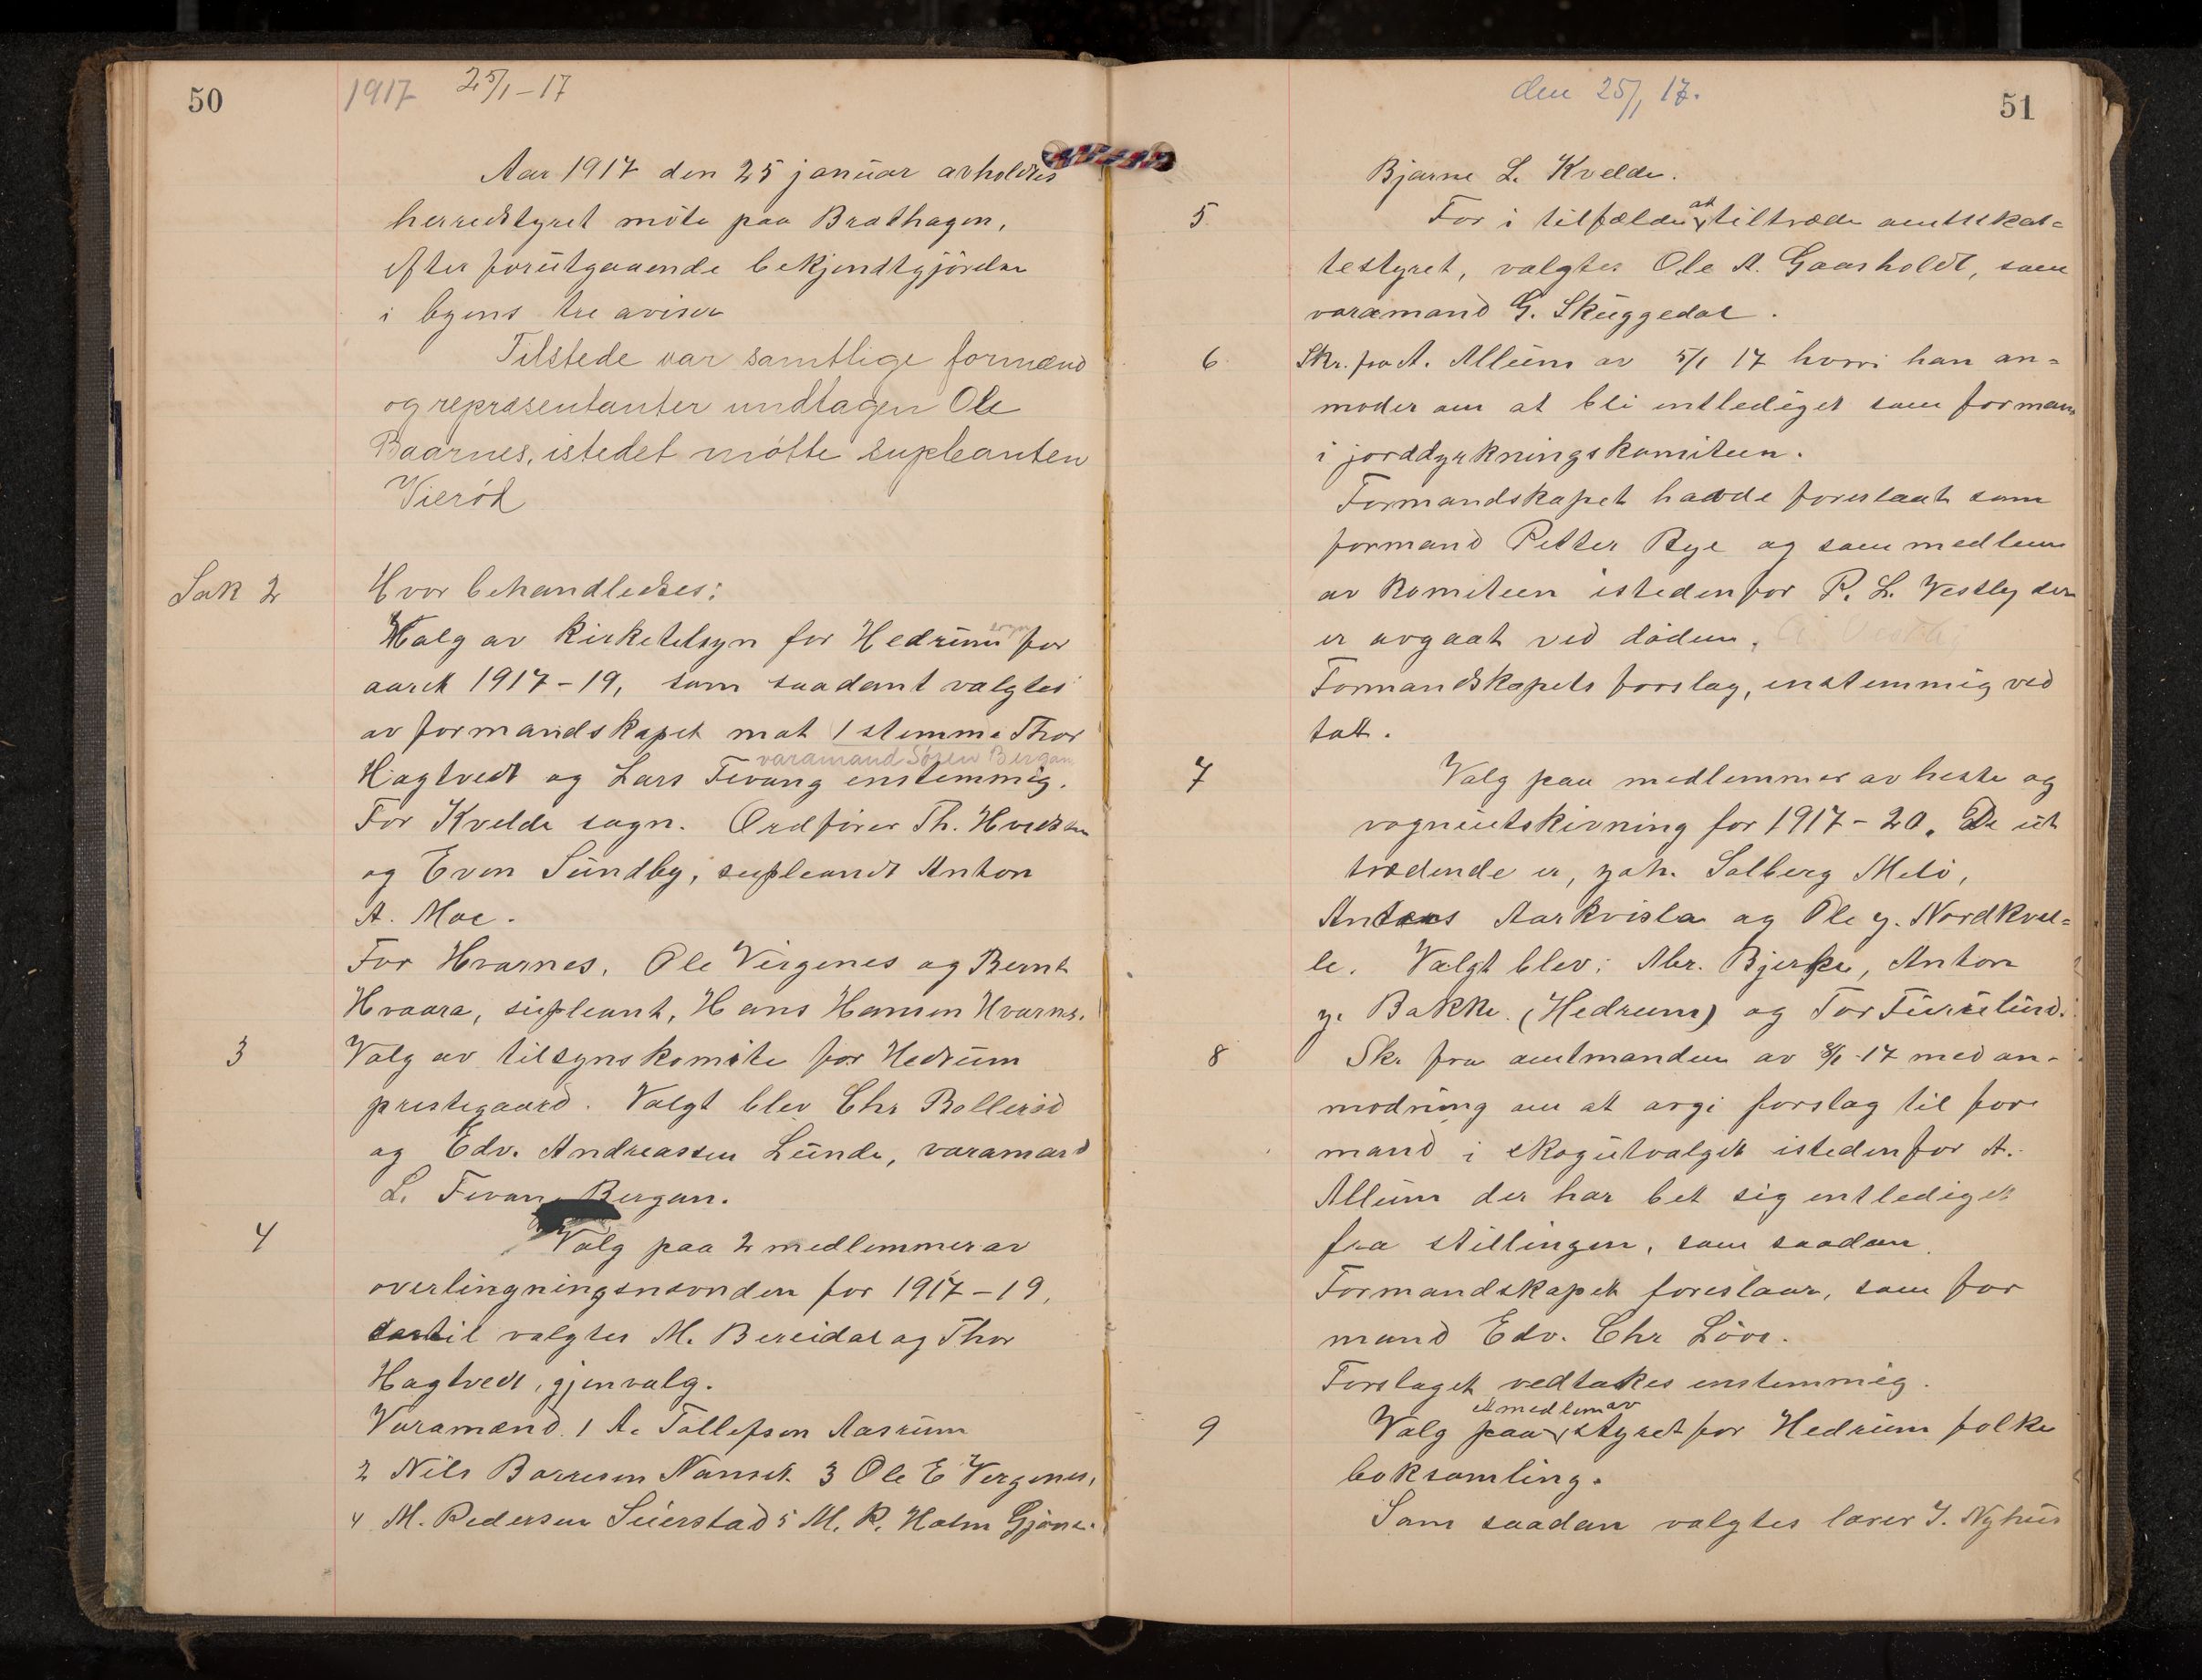 50
1917 25/1-17
Aar 1917 den 25 januar avholdtes
herredstyret möte paa Brathagen,
efter forutgaaende bekjendtgjörelse
i byens tre aviser
Tilstede var samtlige formænd
og repræsentanter undtagen Ole
Baarnes, istedet møtte supleanten
Vierød
Sak 2
Hvor behandledes:
Valg av kirketilsyn for Hedrum sogn for
aaret 1917-19, som saadant valgtes
av formandskapet mot 1 stemme Thor
varamand Søren Bergan
Hagtvedt og Lars Tevang enstemmig.
For Kvelde sogn. Ordförer Th. Hvidsten
og Even Sundby, supleandt Anton
A. Moe.
For Hvarnes, Ole Virgenes og Bernt
Hvaara, supleant, Hans Hansen Hvarnes.
3
Valg av tilsynskomite for Hedrum
prestegaard. Valgt blev Chr Bolleröd
og Edv. Andreassen Lunde, varamand
L. Tevang Bergan.
4
Valg paa 2 medlemmer av
overligningsnævnden for 1917-19,
dertil valgtes M. Bereidal og Thor
Hagtvedt, gjenvalg.
Varamænd. 1 A. Tollefsen Aasrum
2 Nils Borresen Nanset 3 Ole E Vergenes,
4 M. Pedersen Suerstad 5 M. R. Holm Gjöne.
den 25/1 17.
51
Bjarne L. Kvelde.
5
For i tilfælde at tiltræde amtsskat-
testyret, valgtes Ole A. Gaasholdt, som
varamand G. Skuggedal.
6
Skr. fra A. Allum av 5/1 17 hvori han an-
moder om at bli entlediget som formand
i jorddyrkningskomiteen.
Formandskapet hadde foreslaat som
formand Petter Bye og som medlem
av komiteen istedenfor P. L. Vestby der
er avgaat ved döden,
Formandskapets forslag, enstemmig ved
tat.
7
Valg paa medlemmer av heste og
vognutskivning for 1917-20. De ut
trædende er, Joh. Solberg Melö,
Antons Aarkvisla og Ole J. Nordkvel-
le. Valgt blev: Abr. Bjerke, Anton
J. Bakke (Hedrum) og Tor Furulund.
8
Skr fra amtmanden av 8/1-17 med an-
modning om at avgi forslag til for
mand i skogutvalget istedenfor A.
Allum der har bet sig entlediget
fra stillingen, som saadan.
Formandskapet foreslaar, som for
mand Edv. Chr Löve.
Forslaget vedtakes enstemmig.
9
Valg paa et medlem av styret for Hedrum folke
boksamling.
Som saadan valgtes lærer J. Nyhus